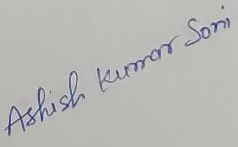 Ashish Kumar Soni